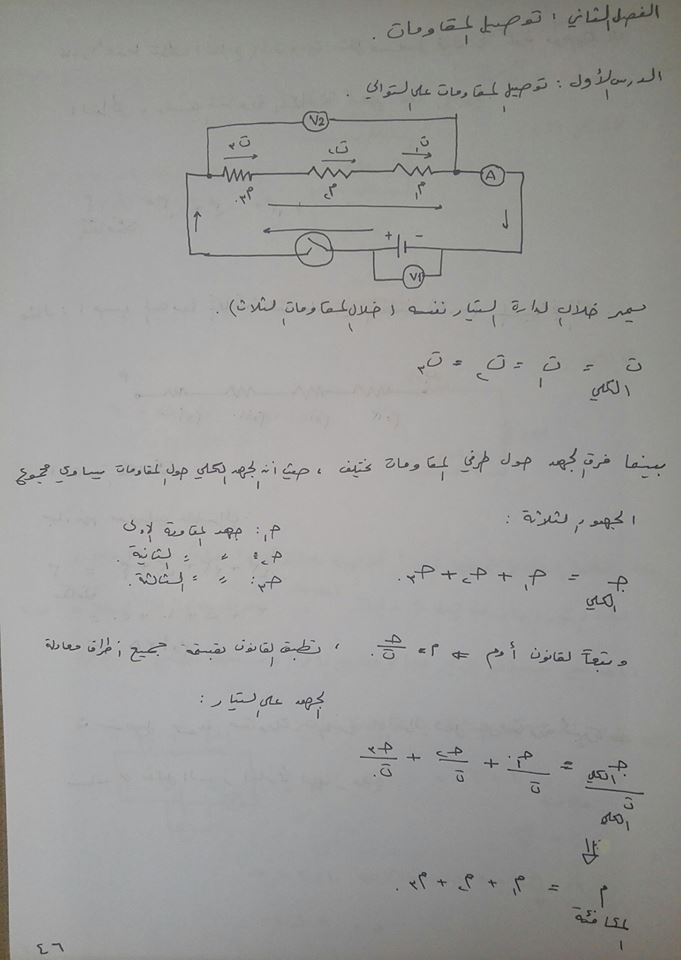 الفصل الثاني : توصيل المقاومات .
الدرس الأول : توصيل المقاومات على التوالي .
V2
ت٣ ت٢ ت١
A
م٣ م٢ م١
+ -
V1
يمر خلال الدارة التيار نفسه (خلال المقاومات الثلاث) .
ت الكلي = ت١ = ت٢ = ت٣
بينما فرق الجهد حول طرفي المقاومات يختلف ، حيث أن الجهد الكلي حول المقاومات يساوي مجموع
الجهود الثلاثة :
جـ١ : جهد المقاومة الأولى
جـ٢ : " " الثانية .
جـ٣ : " " الثالثة .
جـ الكلي = جـ١ + جـ٢ + جـ٣ .
وتبعاً لقانون أوم ⇐ م = جـ/ت . ، نطبق القانون بقسمة جميع أطراف معادلة
الجهد على التيار :
جـ الكلي/ت الكلي = جـ١/ت + جـ٢/ت + جـ٣/ت .
م المكافئة = م١ + م٢ + م٣ .
٤٦